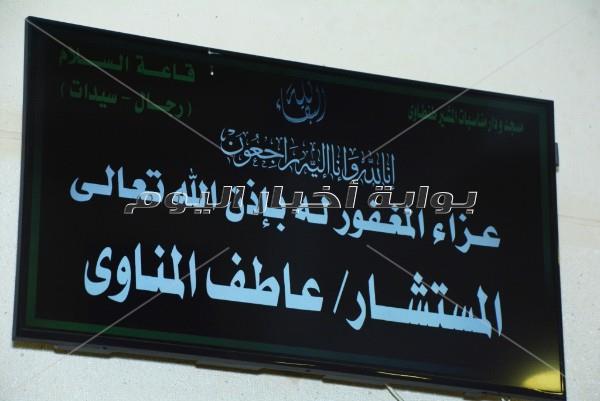 مسجد ودار مناسبات المشير طنطاوى
قاعة السلام
(رجال - سيدات)
البقاء لله
إنا لله وإنا إليه راجعون
عزاء المغفور له بإذن الله تعالى
المستشار/ عاطف المناوى
بوابة أخبار اليوم